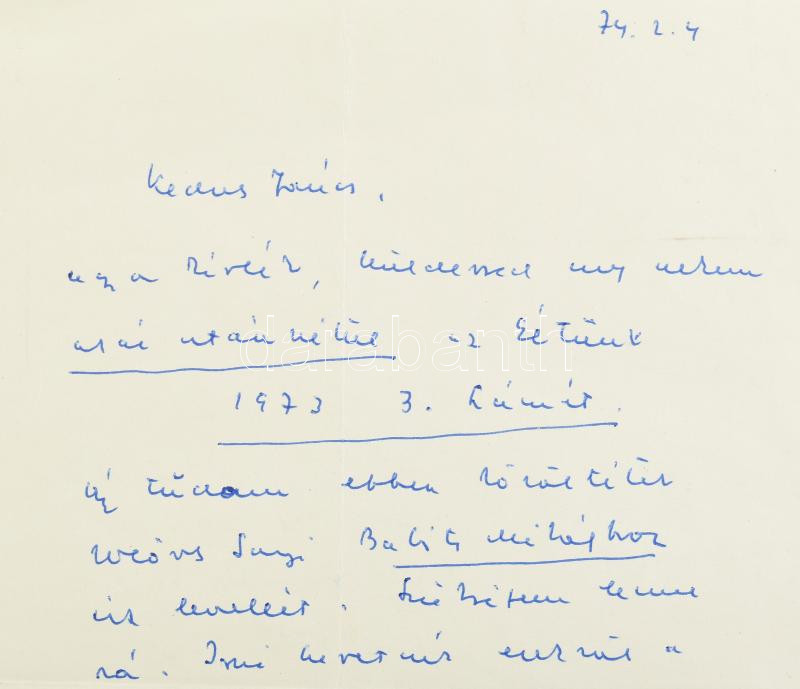 74. 2. 4
Kedves János,
légy szíves, küldessed meg nekem
akár utánvéttel az Életünk
1973 3. számát.
Úgy tudom ebben közölték
Weöres Sanyi Babits Mihályhoz
írt levelét. Szükségem lenne
rá. Írni lehetne erről a
darabanth